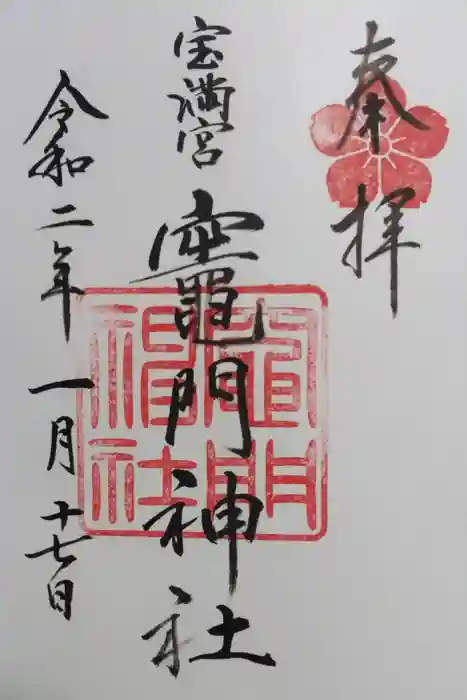 奉拝
宝満宮
竈門神社
令和二年一月十七日
竈門
神社